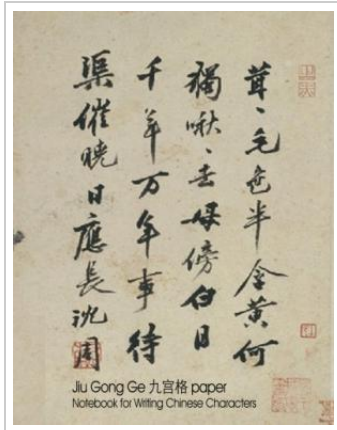 茸丶毛色半含黄何
獨啾丶去母傍白日
千年万年事待
渠催曉日應長沈周
Jiu Gong Ge 九宫格 paper
Notebook for Writing Chinese Characters